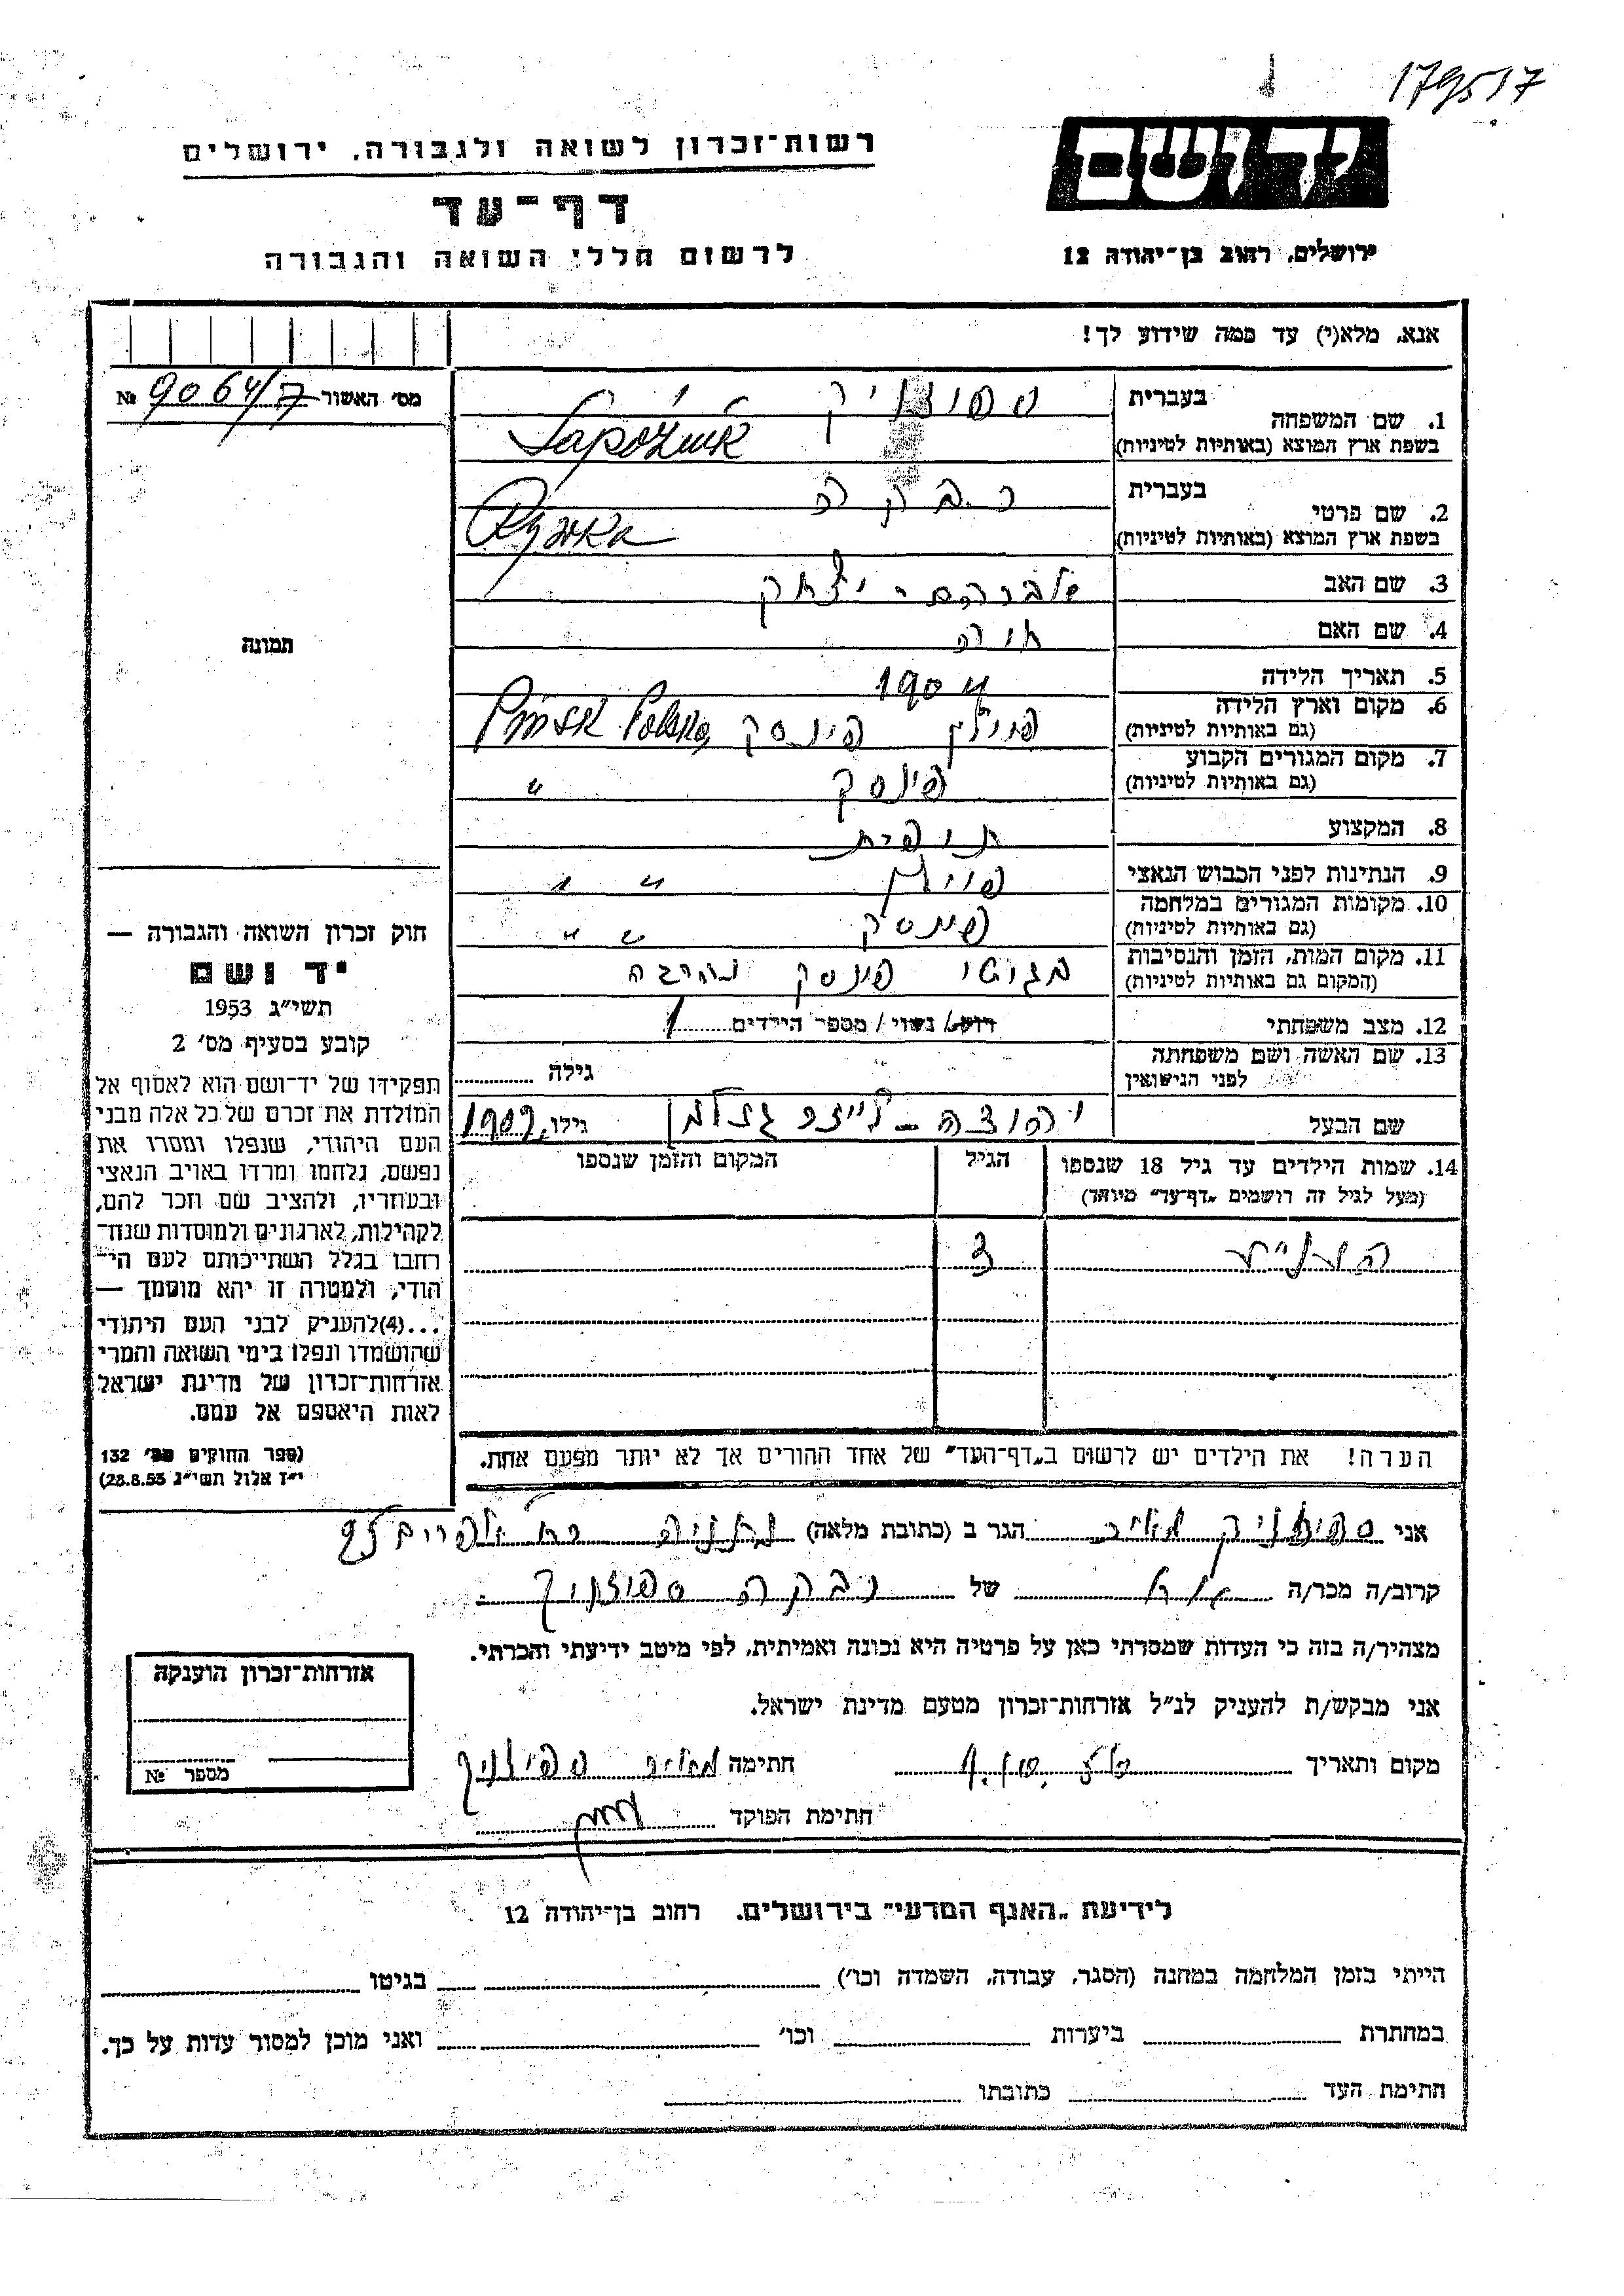 179517
רשות־זכרון לשואה ולגבורה, ירושלים
דף־עד
לרשום חללי השואה והגבורה
יד ושם
ירושלים, רחוב בן־יהודה 12
אנא, מלא(י) עד כמה שידוע לך!
מס׳ האשור 9064/7 №
1. שם המשפחה
בעברית ספוז׳ניק
בשפת ארץ המוצא (באותיות לטיניות) Sapoźnik
2. שם פרטי
בעברית רבקה
בשפת ארץ המוצא (באותיות לטיניות) Rywka
3. שם האב אברהם - יצחק
4. שם האם
5. תאריך הלידה 1904
6. מקום וארץ הלידה
(גם באותיות לטיניות) פולין פינסק Pinsk Polska
7. מקום המגורים הקבוע
(גם באותיות לטיניות) פינסק "
8. המקצוע תופרת
9. הנתינות לפני הכבוש הנאצי פולין " "
10. מקומות המגורים במלחמה
(גם באותיות לטיניות) פינסק " "
11. מקום המות, הזמן והנסיבות
(המקום גם באותיות לטיניות) בגטו פינסק נהרגה
12. מצב משפחתי רווק/ נשוי / מספר הילדים 1
13. שם האשה ושם משפחתה
לפני הנישואין
גילה
שם הבעל יהודה - לייזר גילו 1902
14. שמות הילדים עד גיל 18 שנספו
(מעל לגיל זה רושמים „דף־עד״ מיוחד)
הגיל
המקום והזמן שנספו
3
הערה! את הילדים יש לרשום ב„דף־העד״ של אחד ההורים אך לא יותר מפעם אחת.
תמונה
חוק זכרון השואה והגבורה —
יד ושם
תשי״ג 1953
קובע בסעיף מס׳ 2
תפקידו של יד־ושם הוא לאסוף אל
המולדת את זכרם של כל אלה מבני
העם היהודי, שנפלו ומסרו את
נפשם, נלחמו ומרדו באויב הנאצי
ובעוזריו, ולהציב שם וזכר להם,
לקהילות, לארגונים ולמוסדות שנח־
רבו בגלל השתייכותם לעם הי־
הודי, ולמטרה זו יהא מוסמך —
...(4)להעניק לבני העם היהודי
שהושמדו ונפלו בימי השואה והמרי
אזרחות־זכרון של מדינת ישראל
לאות היאספם אל עמם.
(ספר החוקים מס׳ 132
י״ז אלול תשי״ג 28.8.53)
אני ספוז׳ניק מאיר הגר ב (כתובת מלאה) נתניה בר אפרים 25
קרוב/ה מכר/ה אח של רבקה ספוז׳ניק
מצהיר/ה בזה כי העדות שמסרתי כאן על פרטיה היא נכונה ואמיתית, לפי מיטב ידיעתי והכרתי.
אני מבקש/ת להעניק לנ״ל אזרחות־זכרון מטעם מדינת ישראל.
מקום ותאריך חתימה מאיר ספוז׳ניק
חתימת הפוקד
אזרחות־זכרון הוענקה
מספר №
לידיעת „האגף המדעי״ בירושלים, רחוב בן־יהודה 12
הייתי בזמן המלחמה במחנה (הסגר, עבודה, השמדה וכו׳) בגיטו
במחתרת ביערות וכו׳ ואני מוכן למסור עדות על כך.
חתימת העד כתובתו